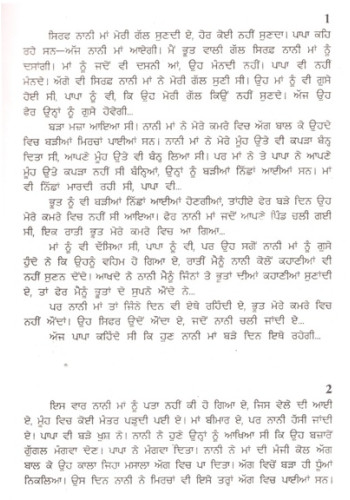 1
ਸਿਰਫ ਨਾਨੀ ਮਾਂ ਮੇਰੀ ਗੱਲ ਸੁਣਦੀ ਏ, ਹੋਰ ਕੋਈ ਨਹੀਂ ਸੁਣਦਾ। ਪਾਪਾ ਕਹਿ
ਰਹੇ ਸਨ—ਅੱਜ ਨਾਨੀ ਮਾਂ ਆਏਗੀ। ਮੈਂ ਭੂਤ ਵਾਲੀ ਗੱਲ ਸਿਰਫ਼ ਨਾਨੀ ਮਾਂ ਨੂੰ
ਦਸਾਂਗੀ। ਮਾਂ ਨੂੰ ਜਦੋਂ ਵੀ ਦਸਨੀ ਆਂ, ਉਹ ਮੰਨਦੀ ਨਹੀਂ। ਪਾਪਾ ਵੀ ਨਹੀਂ
ਮੰਨਦੇ। ਅੱਗੇ ਵੀ ਸਿਰਫ ਨਾਨੀ ਮਾਂ ਨੇ ਮੇਰੀ ਗੱਲ ਸੁਣੀ ਸੀ। ਉਹ ਮਾਂ ਨੂੰ ਵੀ ਗੁਸੇ
ਹੋਈ ਸੀ, ਪਾਪਾ ਨੂੰ ਵੀ, ਕਿ ਉਹ ਮੇਰੀ ਗੱਲ ਕਿਉਂ ਨਹੀਂ ਸੁਣਦੇ। ਅੱਜ ਉਹ
ਫੇਰ ਉਨ੍ਹਾਂ ਨੂੰ ਗੁਸੇ ਹੋਵੇਗੀ...
ਬੜਾ ਮਜ਼ਾ ਆਇਆ ਸੀ। ਨਾਨੀ ਮਾਂ ਨੇ ਮੇਰੇ ਕਮਰੇ ਵਿਚ ਅੱਗ ਬਾਲ ਕੇ ਉਹਦੇ
ਵਿਚ ਬੜੀਆਂ ਮਿਰਚਾਂ ਪਾਈਆਂ ਸਨ। ਨਾਨੀ ਮਾਂ ਨੇ ਮੇਰੇ ਮੂੰਹ ਉਤੇ ਵੀ ਕਪੜਾ ਬੰਨ੍ਹ
ਦਿਤਾ ਸੀ, ਆਪਣੇ ਮੂੰਹ ਉਤੇ ਵੀ ਬੰਨ੍ਹ ਲਿਆ ਸੀ। ਪਰ ਮਾਂ ਨੇ ਤੇ ਪਾਪਾ ਨੇ ਆਪਣੇ
ਮੂੰਹ ਉਤੇ ਕਪੜਾ ਨਹੀਂ ਸੀ ਬੰਨ੍ਹਿਆ, ਉਨ੍ਹਾਂ ਨੂੰ ਬੜੀਆਂ ਨਿੱਛਾਂ ਆਈਆਂ ਸਨ। ਮਾਂ
ਵੀ ਨਿੱਛਾਂ ਮਾਰਦੀ ਰਹੀ ਸੀ, ਪਾਪਾ ਵੀ...
ਭੂਤ ਨੂੰ ਵੀ ਬੜੀਆਂ ਨਿੱਛਾਂ ਆਈਆਂ ਹੋਣਗੀਆਂ, ਤਾਂਹੀਏ ਫੇਰ ਬੜੇ ਦਿਨ ਉਹ
ਮੇਰੇ ਕਮਰੇ ਵਿਚ ਨਹੀਂ ਸੀ ਆਇਆ। ਫੇਰ ਨਾਨੀ ਮਾਂ ਜਦੋਂ ਆਪਣੇ ਪਿੰਡ ਚਲੀ ਗਈ
ਸੀ, ਇਕ ਰਾਤੀਂ ਭੂਤ ਮੇਰੇ ਕਮਰੇ ਵਿਚ ਆ ਗਿਆ...
ਮਾਂ ਨੂੰ ਵੀ ਦੱਸਿਆ ਸੀ, ਪਾਪਾ ਨੂੰ ਵੀ, ਪਰ ਉਹ ਸਗੋਂ ਨਾਨੀ ਮਾਂ ਨੂੰ ਗੁਸੇ
ਹੁੰਦੇ ਨੇ ਕਿ ਉਹਨੂੰ ਵਹਿਮ ਹੋ ਗਿਆ ਏ, ਰਾਤੀਂ ਮੈਨੂੰ ਨਾਨੀ ਕੋਲੋਂ ਕਹਾਣੀਆਂ ਵੀ
ਨਹੀਂ ਸੁਣਨ ਦੇਂਦੇ। ਆਖਦੇ ਨੇ ਨਾਨੀ ਮੈਨੂੰ ਜਿੰਨਾਂ ਤੇ ਭੂਤਾਂ ਦੀਆਂ ਕਹਾਣੀਆਂ ਸੁਣਾਂਦੀ
ਏ, ਤਾਂ ਫੇਰ ਮੈਨੂੰ ਭੂਤਾਂ ਦੇ ਸੁਪਨੇ ਔਂਦੇ ਨੇ...
ਪਰ ਨਾਨੀ ਮਾਂ ਤਾਂ ਜਿੰਨੇ ਦਿਨ ਵੀ ਏਥੇ ਰਹਿੰਦੀ ਏ, ਭੂਤ ਮੇਰੇ ਕਮਰੇ ਵਿਚ
ਨਹੀਂ ਔਂਦਾ। ਉਹ ਸਿਰਫ ਉਦੋਂ ਔਂਦਾ ਏ, ਜਦੋਂ ਨਾਨੀ ਚਲੀ ਜਾਂਦੀ ਏ...
ਅੱਜ ਪਾਪਾ ਕਹਿੰਦੇ ਸੀ ਕਿ ਹੁਣ ਨਾਨੀ ਮਾਂ ਬੜੇ ਦਿਨ ਇਥੇ ਰਹੇਗੀ...
2
ਇਸ ਵਾਰ ਨਾਨੀ ਮਾਂ ਨੂੰ ਪਤਾ ਨਹੀਂ ਕੀ ਹੋ ਗਿਆ ਏ, ਜਿਸ ਵੇਲੇ ਦੀ ਆਈ
ਏ, ਮੂੰਹ ਵਿਚ ਕੋਈ ਮੰਤਰ ਪੜ੍ਹਦੀ ਪਈ ਏ। ਮਾਂ ਬੀਮਾਰ ਏ, ਪਰ ਨਾਨੀ ਹੱਸੀ ਜਾਂਦੀ
ਏ। ਪਾਪਾ ਵੀ ਬੜੇ ਖੁਸ਼ ਨੇ। ਨਾਨੀ ਨੇ ਹੁਣੇ ਉਨ੍ਹਾਂ ਨੂੰ ਆਖਿਆ ਸੀ ਕਿ ਉਹ ਬਜ਼ਾਰੋਂ
ਗੁੱਗਲ ਮੰਗਵਾ ਦੇਣ। ਪਾਪਾ ਨੇ ਮੰਗਵਾ ਦਿਤਾ। ਨਾਨੀ ਮਾਂ ਦੀ ਮੰਜੀ ਕੋਲ ਅੱਗ
ਬਾਲ ਕੇ ਉਹ ਕਾਲਾ ਜਿਹਾ ਮਸਾਲਾ ਅੱਗ ਵਿਚ ਪਾ ਦਿਤਾ। ਅੱਗ ਵਿਚੋਂ ਬੜਾ ਹੀ ਧੂੰਆਂ
ਨਿਕਲਿਆ। ਉਸ ਦਿਨ ਨਾਨੀ ਨੇ ਮਿਰਚਾਂ ਵੀ ਇਸੇ ਤਰ੍ਹਾਂ ਅੱਗ ਵਿਚ ਪਾਈਆਂ ਸਨ।